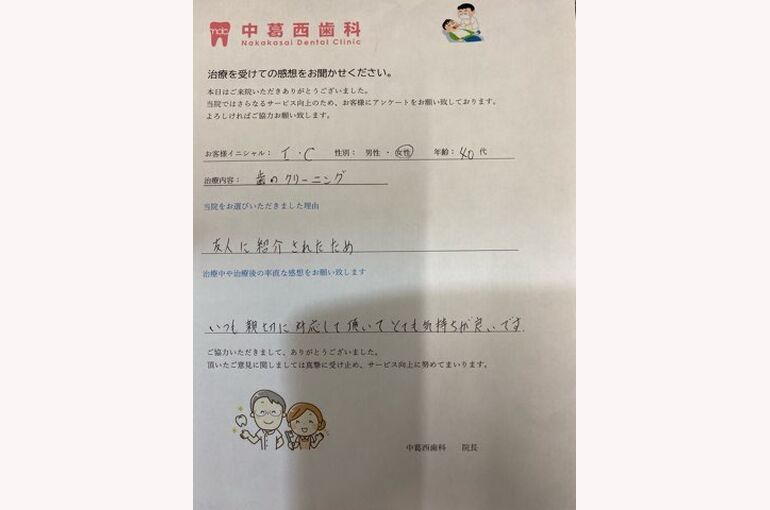 ndc 中葛西歯科
Nakakasai Dental Clinic
治療を受けての感想をお聞かせください。
本日はご来院いただきありがとうございました。
当院ではさらなるサービス向上のため、お客様にアンケートをお願い致しております。
よろしければご協力お願い致します。
お客様イニシャル： I・C 性別： 男性 ・ 女性 年齢：40代
治療内容： 歯のクリーニング
当院をお選びいただきました理由
友人に紹介されたため
治療中や治療後の率直な感想をお願い致します
いつも親切に対応して頂いてとても気持ちが良いです。
ご協力いただきまして、ありがとうございました。
頂いたご意見に関しましては真摯に受け止め、サービス向上に努めてまいります。
中葛西歯科 院長